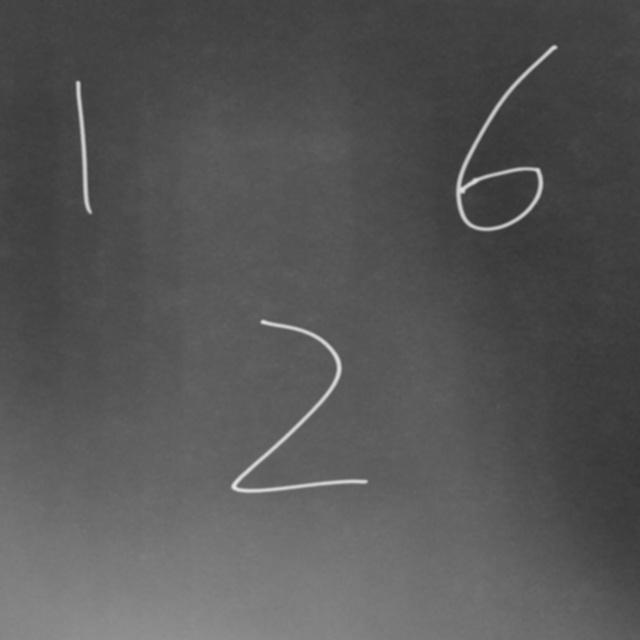 1 6
2